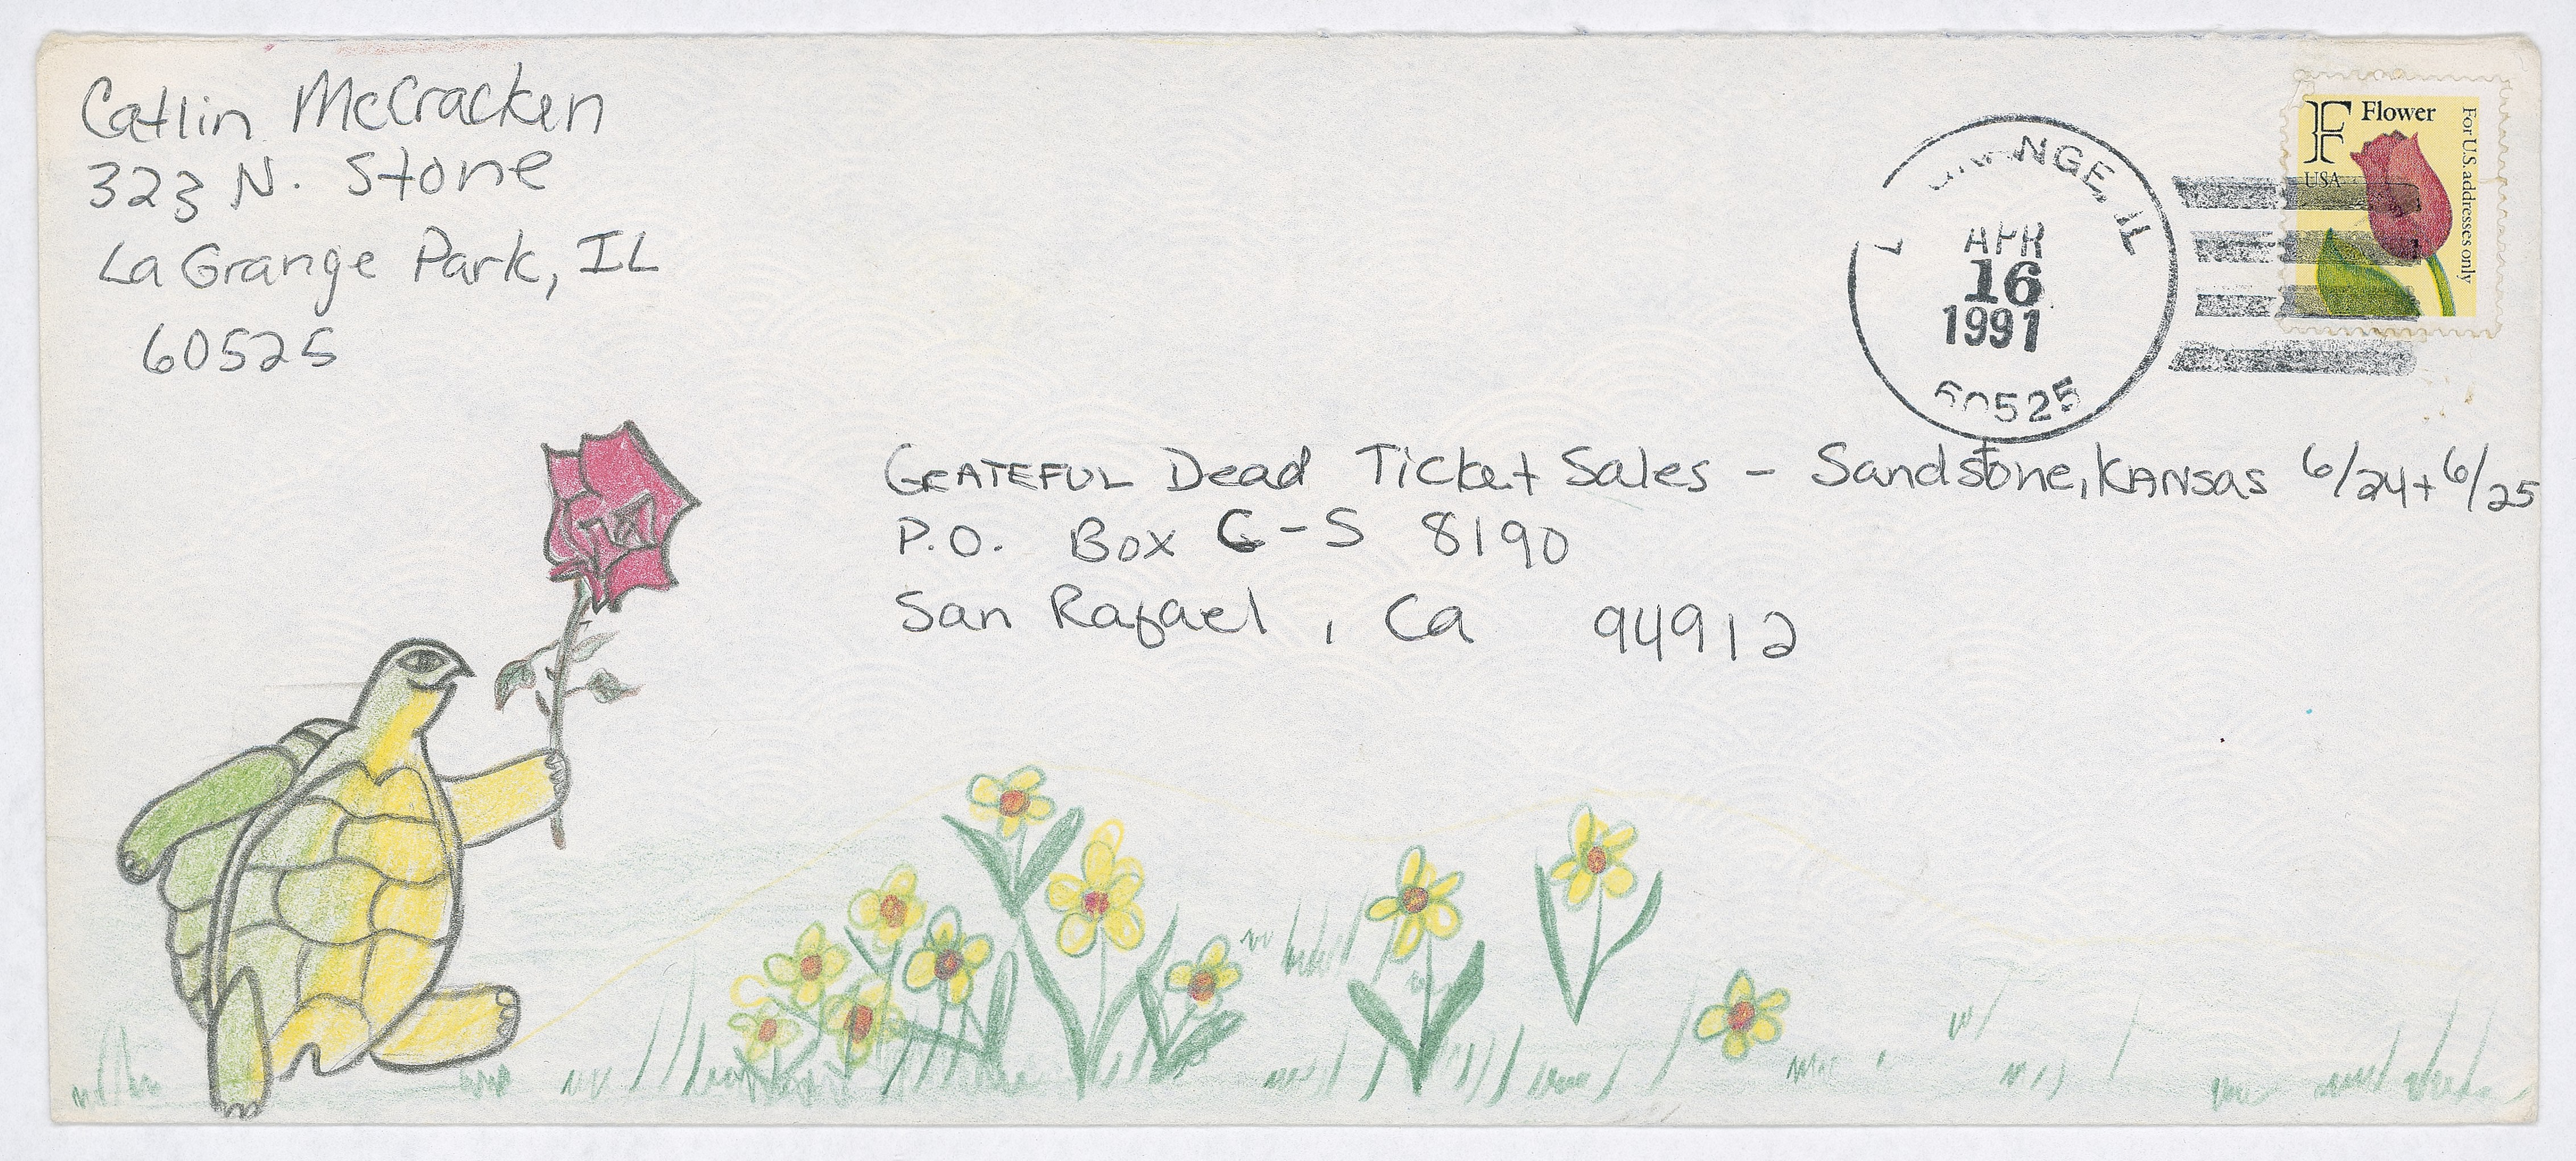 Catlin McCracken
323 N. Stone
La Grange Park, IL
60525
NGE, IL
APR
16
1991
60525
F Flower
USA
For U.S. addresses only
GRATEFUL Dead Ticket Sales - Sandstone, KANSAS 6/24 + 6/25
P.O. Box C-S 8190
San Rafael, Ca 94912